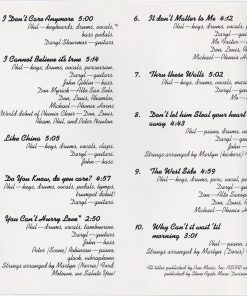 I Don't Care Anymore 5:00
Phil—keyboards, drums, vocals,
bass pedals
Daryl Stuermer—guitars
I Cannot Believe it's true 5:14
Phil—keys, drums, vocals, percussion
Daryl—guitars
John Giblin—bass
Don Myrick—Alto Sax Solo
Don, Louis, Rhamlee,
Michael—Phenix Horns
World debut of Phenix Choir—Don, Louis,
Rham, Phil, and Peter Newton
Like China 5:05
Phil—keys, drums, vocals, claps
Daryl—guitars
John—bass
Do You Know, do you care? 4:57
Phil—keys, drums, vocals, pedals, tymps,
trumpet debut
Daryl—guitar
You Can't Hurry Love* 2:50
Phil—drums, vocals, tambourine
Daryl—guitars
John—bass
Peter Robinson—piano,
glock, vibraphone
Strings arranged by Martyn Ford,
Motown, we Salute You!
6. It don't Matter to Me 4:12
Phil—keys, drums, vocals
Daryl—guitar
Mo Foster—
Don, Louis,
Michael—Phenix Horns
7. Thru these Walls 5:02
Phil—keys, drums, vocals
Daryl—guitar
Mo—
8. Don't let him Steal your heart
away 4:43
Phil—piano, drums,
Daryl—guitars
Mo—
Strings arranged by Martyn
9. The West Side 4:59
Phil—keys, drums, perc, vocal,
Daryl—
Don—Alto Saxop
Don, Louis,
Michael—Phenix Horns
10. Why Can't it wait 'til
morning 3:01
Phil—piano,
Mo—
Strings arranged by Martyn
All titles published by
published by